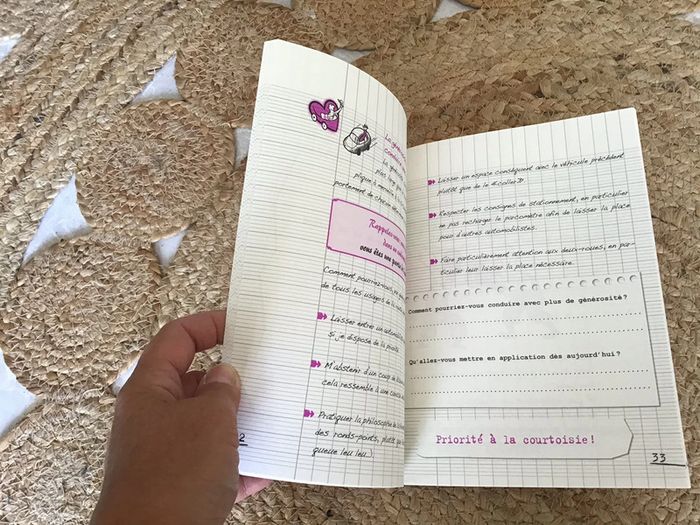 La
La
plus large
plique à
portement de chacun
Rappelez-vous
dans un
vous êtes une partie
Comment pourriez-vous, en
de tous les usagers de la
Laisser entrer un automobiliste
si je dispose de la priorité
M'abstenir d'un coup de
cela ressemble à une
Pratiquer la philosophie
des ronds-points, plutôt que
queue leu leu.)
2
Laisser un espace conséquent avec le véhicule précédent
plutôt que de le «coller».
Respecter les consignes de stationnement, en particulier
ne pas recharger le parcomètre afin de laisser la place
pour d'autres automobilistes.
Faire particulièrement attention aux deux-roues, en par-
ticulier leur laisser la place nécessaire.
Comment pourriez-vous conduire avec plus de générosité?
Qu'allez-vous mettre en application dès aujourd'hui?
Priorité à la courtoisie!
33